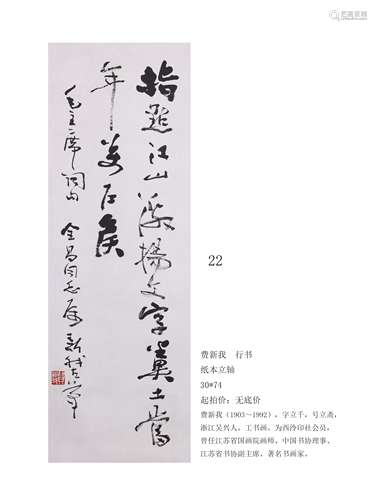 指點江山激揚文字糞土當
年萬户侯
毛主席詞句 全昌同志屬 新我左筆
22
费新我 行书
纸本立轴
30*74
起拍价：无底价
费新我（1903~1992），字立千，号立斋，
浙江吴兴人。工书画。为西泠印社会员，
曾任江苏省国画院画师、中国书协理事、
江苏省书协副主席，著名书画家。